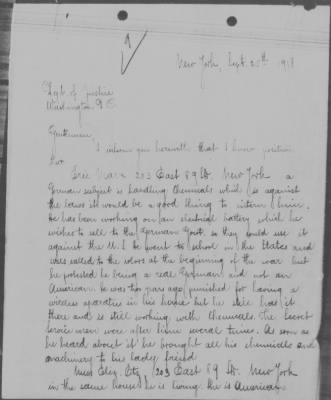 New York, Sept. 20th 1918
Dept. of Justice
Washington D.C.
Gentlemen,
I inform you herewith that I know positive
that
Eric 203 East 89 St. New York a
German subject is handling Chemicals which is against
the laws it would be a good thing to intern him.
he has been working on an electrical battery which he
wishes to sell to the German Govt. so they could use it
against the U.S. he went to school in the States and
was called to the colors at the beginning of the war but
he protested he being a real German and not an
American. he was two years ago punished for having a
wireless aparatus in his house but he still has it
there and is still working with Chemicals. The Secret
Service men were after him several times. As soon as
he heard about it he brought all his chemicals and
machinery to his lady friend
Miss Eliz. 203 East 89 St. New York
in the same house he is living she is American